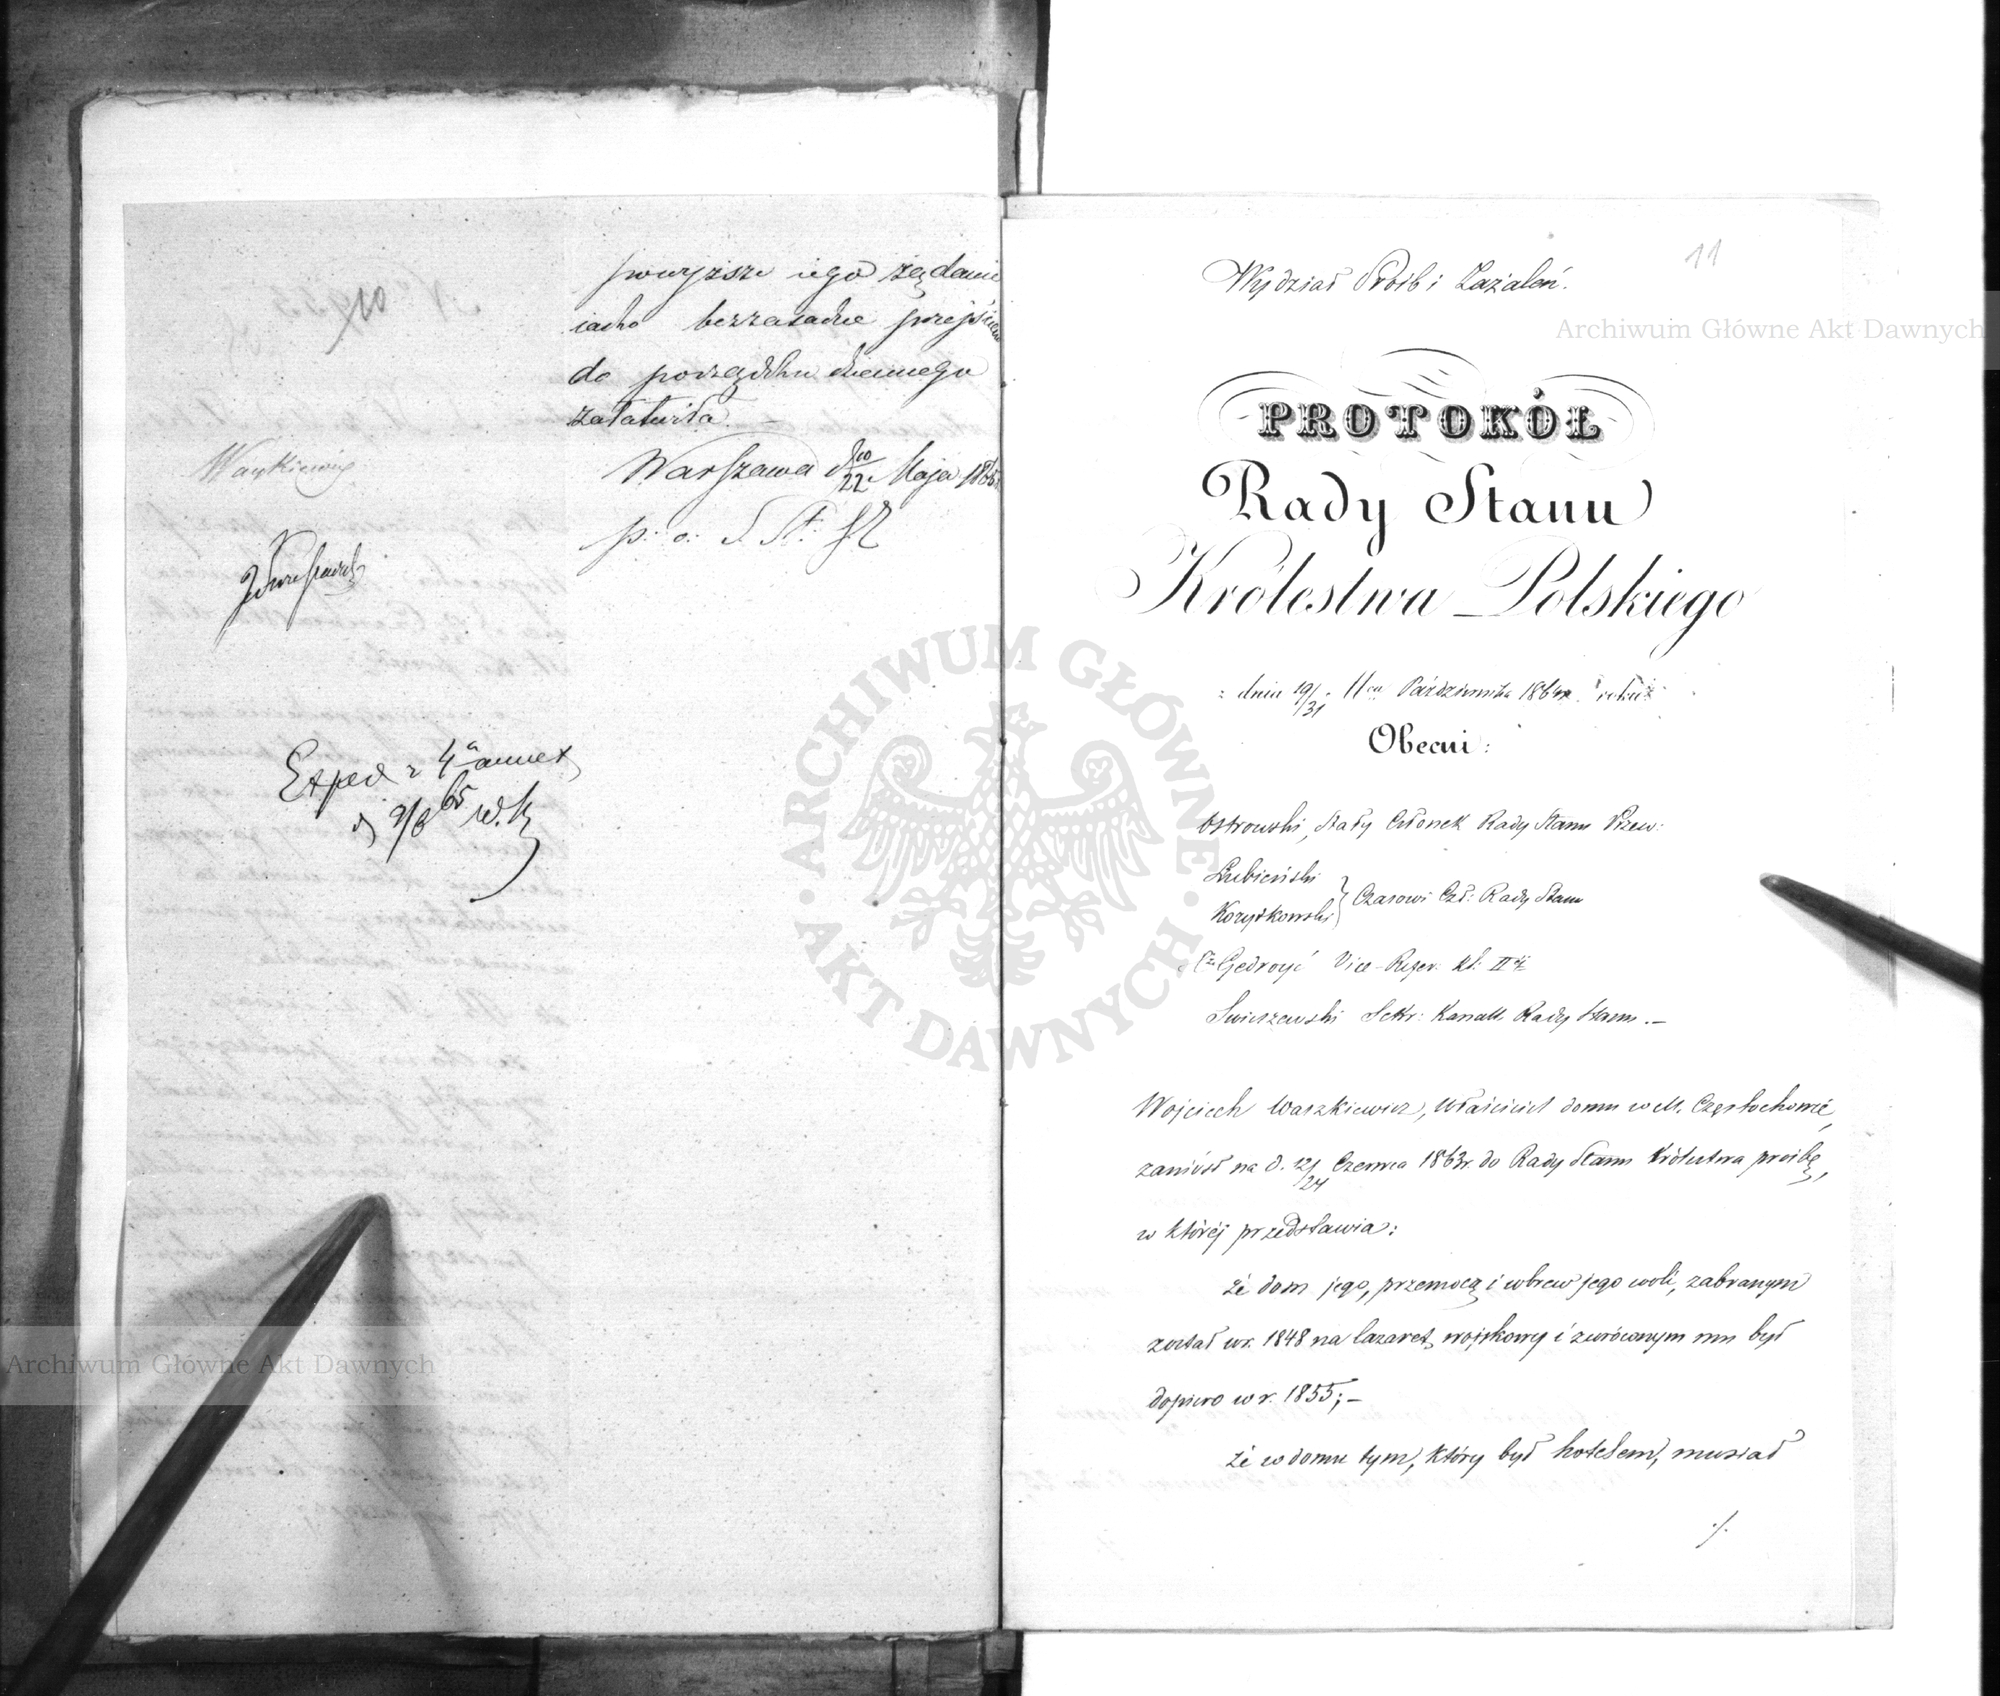 10
powyższe iego żądanie
iako bezzasadne przejściem
do porządku dziennego
załatwiła. —
Warszawa d. 10/22 Maja 1865 r.
p. o. S. St.
Exped z 4a annex
d 9/6 65 W. K.
11
Wydział Próśb i Zażaleń.
PROTOKÓŁ
Rady Stanu
Królestwa Polskiego
z dnia 19/31 Października 1864 r. roku
Obecni:
Ostrowski, Stały Członek Rady Stanu Prezew:
Łubieński
Korytkowski } Czasowi Czł: Rady Stanu
Xże Gedroyć Vice-Refer. kl. II éj
Swieszewski Sekr: Kancell. Rady Stanu. —
Wojciech Waszkiewicz, Właściciel domu w M. Częstochowie,
zaniósł na d. 12/24 Czerwca 1863 r. do Rady Stanu Królestwa prośbę,
w któréj przedstawia:
że dom jego, przemocą i wbrew jego woli, zabranym
został w r. 1848 na lazaret wojskowy i zwróconym mu był
dopiero w r. 1855; —
że w domu tym, który był hotelem, musiał
./.
Archiwum Główne Akt Dawnych
Archiwum Główne Akt Dawnych
ARCHIWUM GŁÓWNE · AKT DAWNYCH ·